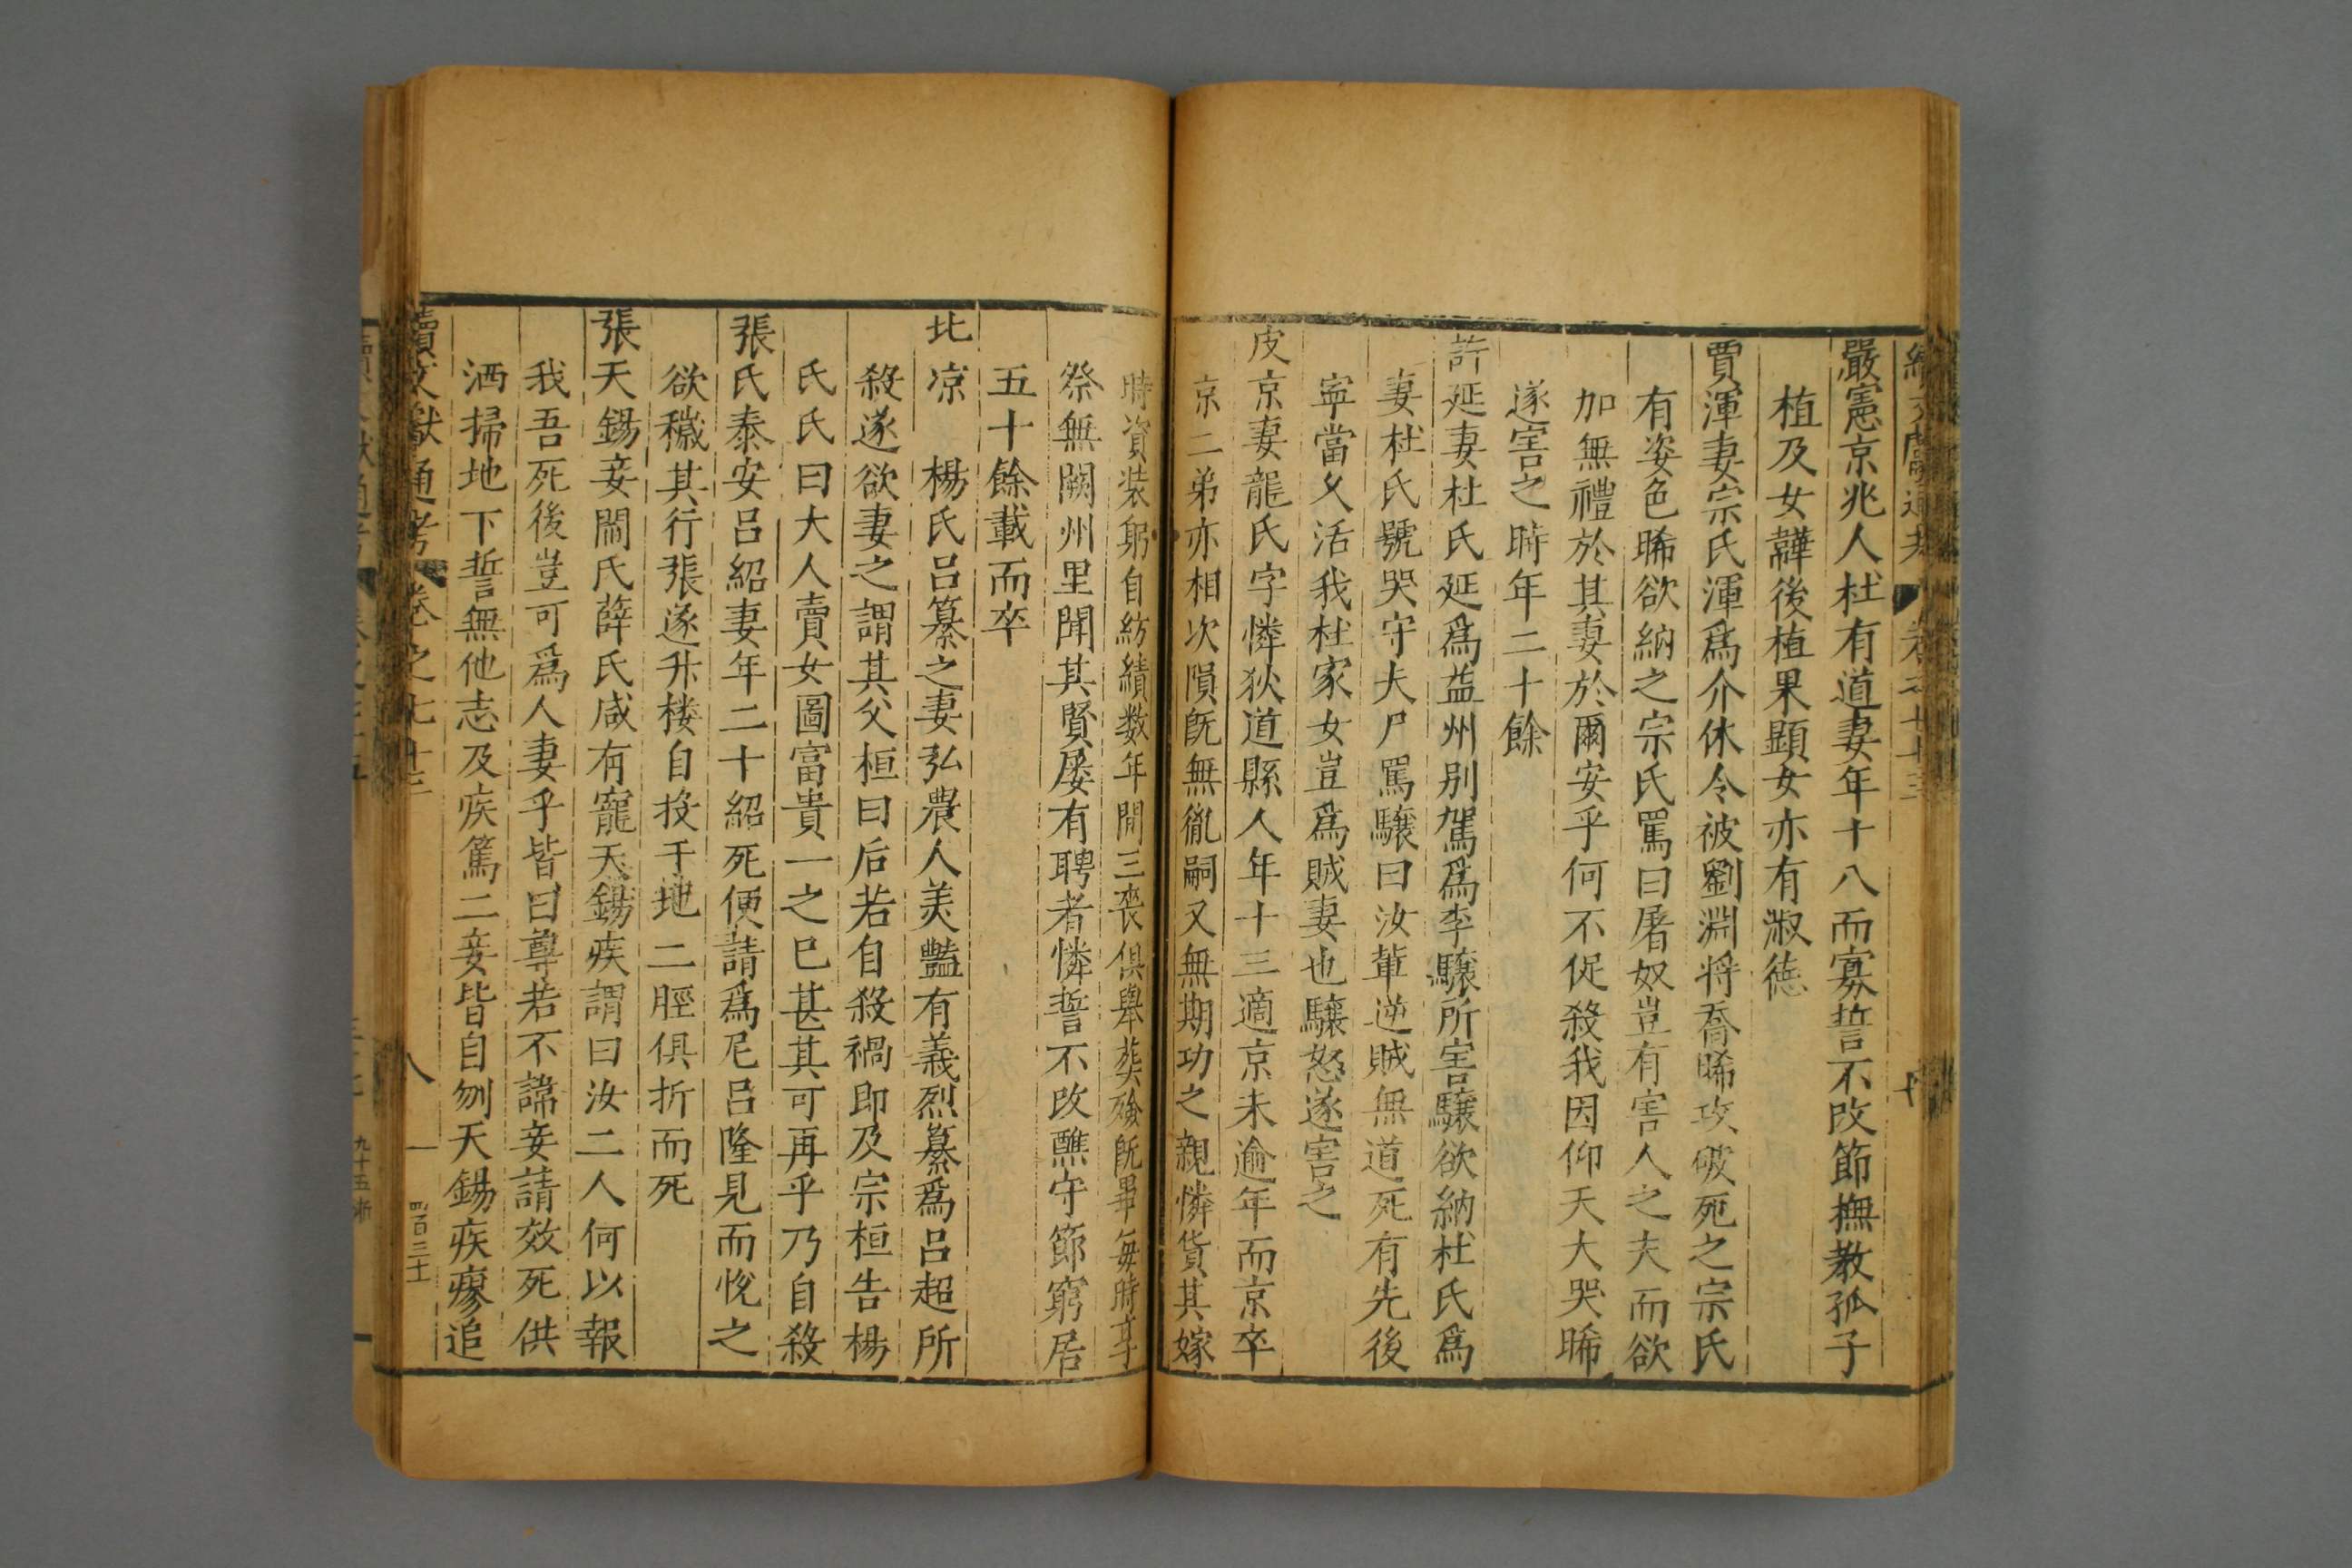 嚴憲京兆人杜有道妻年十八而寡誓不改節撫教孤子
植及女韡後植果顯女亦有淑德
賈渾妻宗氏渾爲介休令被劉淵將喬晞攻破死之宗氏
有姿色晞欲納之宗氏罵曰屠奴豈有害人之夫而欲
加無禮於其妻於爾安乎何不促殺我因仰天大哭晞
遂害之時年二十餘
許延妻杜氏延爲益州别駕爲李驤所害驤欲納杜氏爲
妻杜氏號哭守夫尸罵驤曰汝輩逆賊無道死有先後
寧當久活我杜家女豈爲賊妻也驤怒遂害之
皮京妻龍氏字憐狄道縣人年十三適京未逾年而京卒
京二弟亦相次隕旣無胤嗣又無期功之親憐貨其嫁
時資装躬自紡績数年間三喪俱舉葬殮旣畢每時享
祭無闕州里聞其賢屡有聘者憐誓不改醮守節窮居
五十餘載而卒
北凉 楊氏吕纂之妻弘農人美豔有義烈纂爲吕超所
殺遂欲妻之謂其父桓曰后若自殺禍即及宗桓告楊
氏氏曰大人賣女圖富貴一之巳甚其可再乎乃自殺
張氏泰安吕紹妻年二十紹死便請爲尼吕隆見而悅之
欲穢其行張遂升楼自投于地二脛俱折而死
張天錫妾閻氏薛氏咸有寵天錫疾謂曰汝二人何以報
我吾死後豈可爲人妻乎皆曰尊若不諱妾請效死供
洒掃地下誓無他志及疾篤二妾皆自刎天錫疾瘳追
續文獻通考 卷之七十三 八